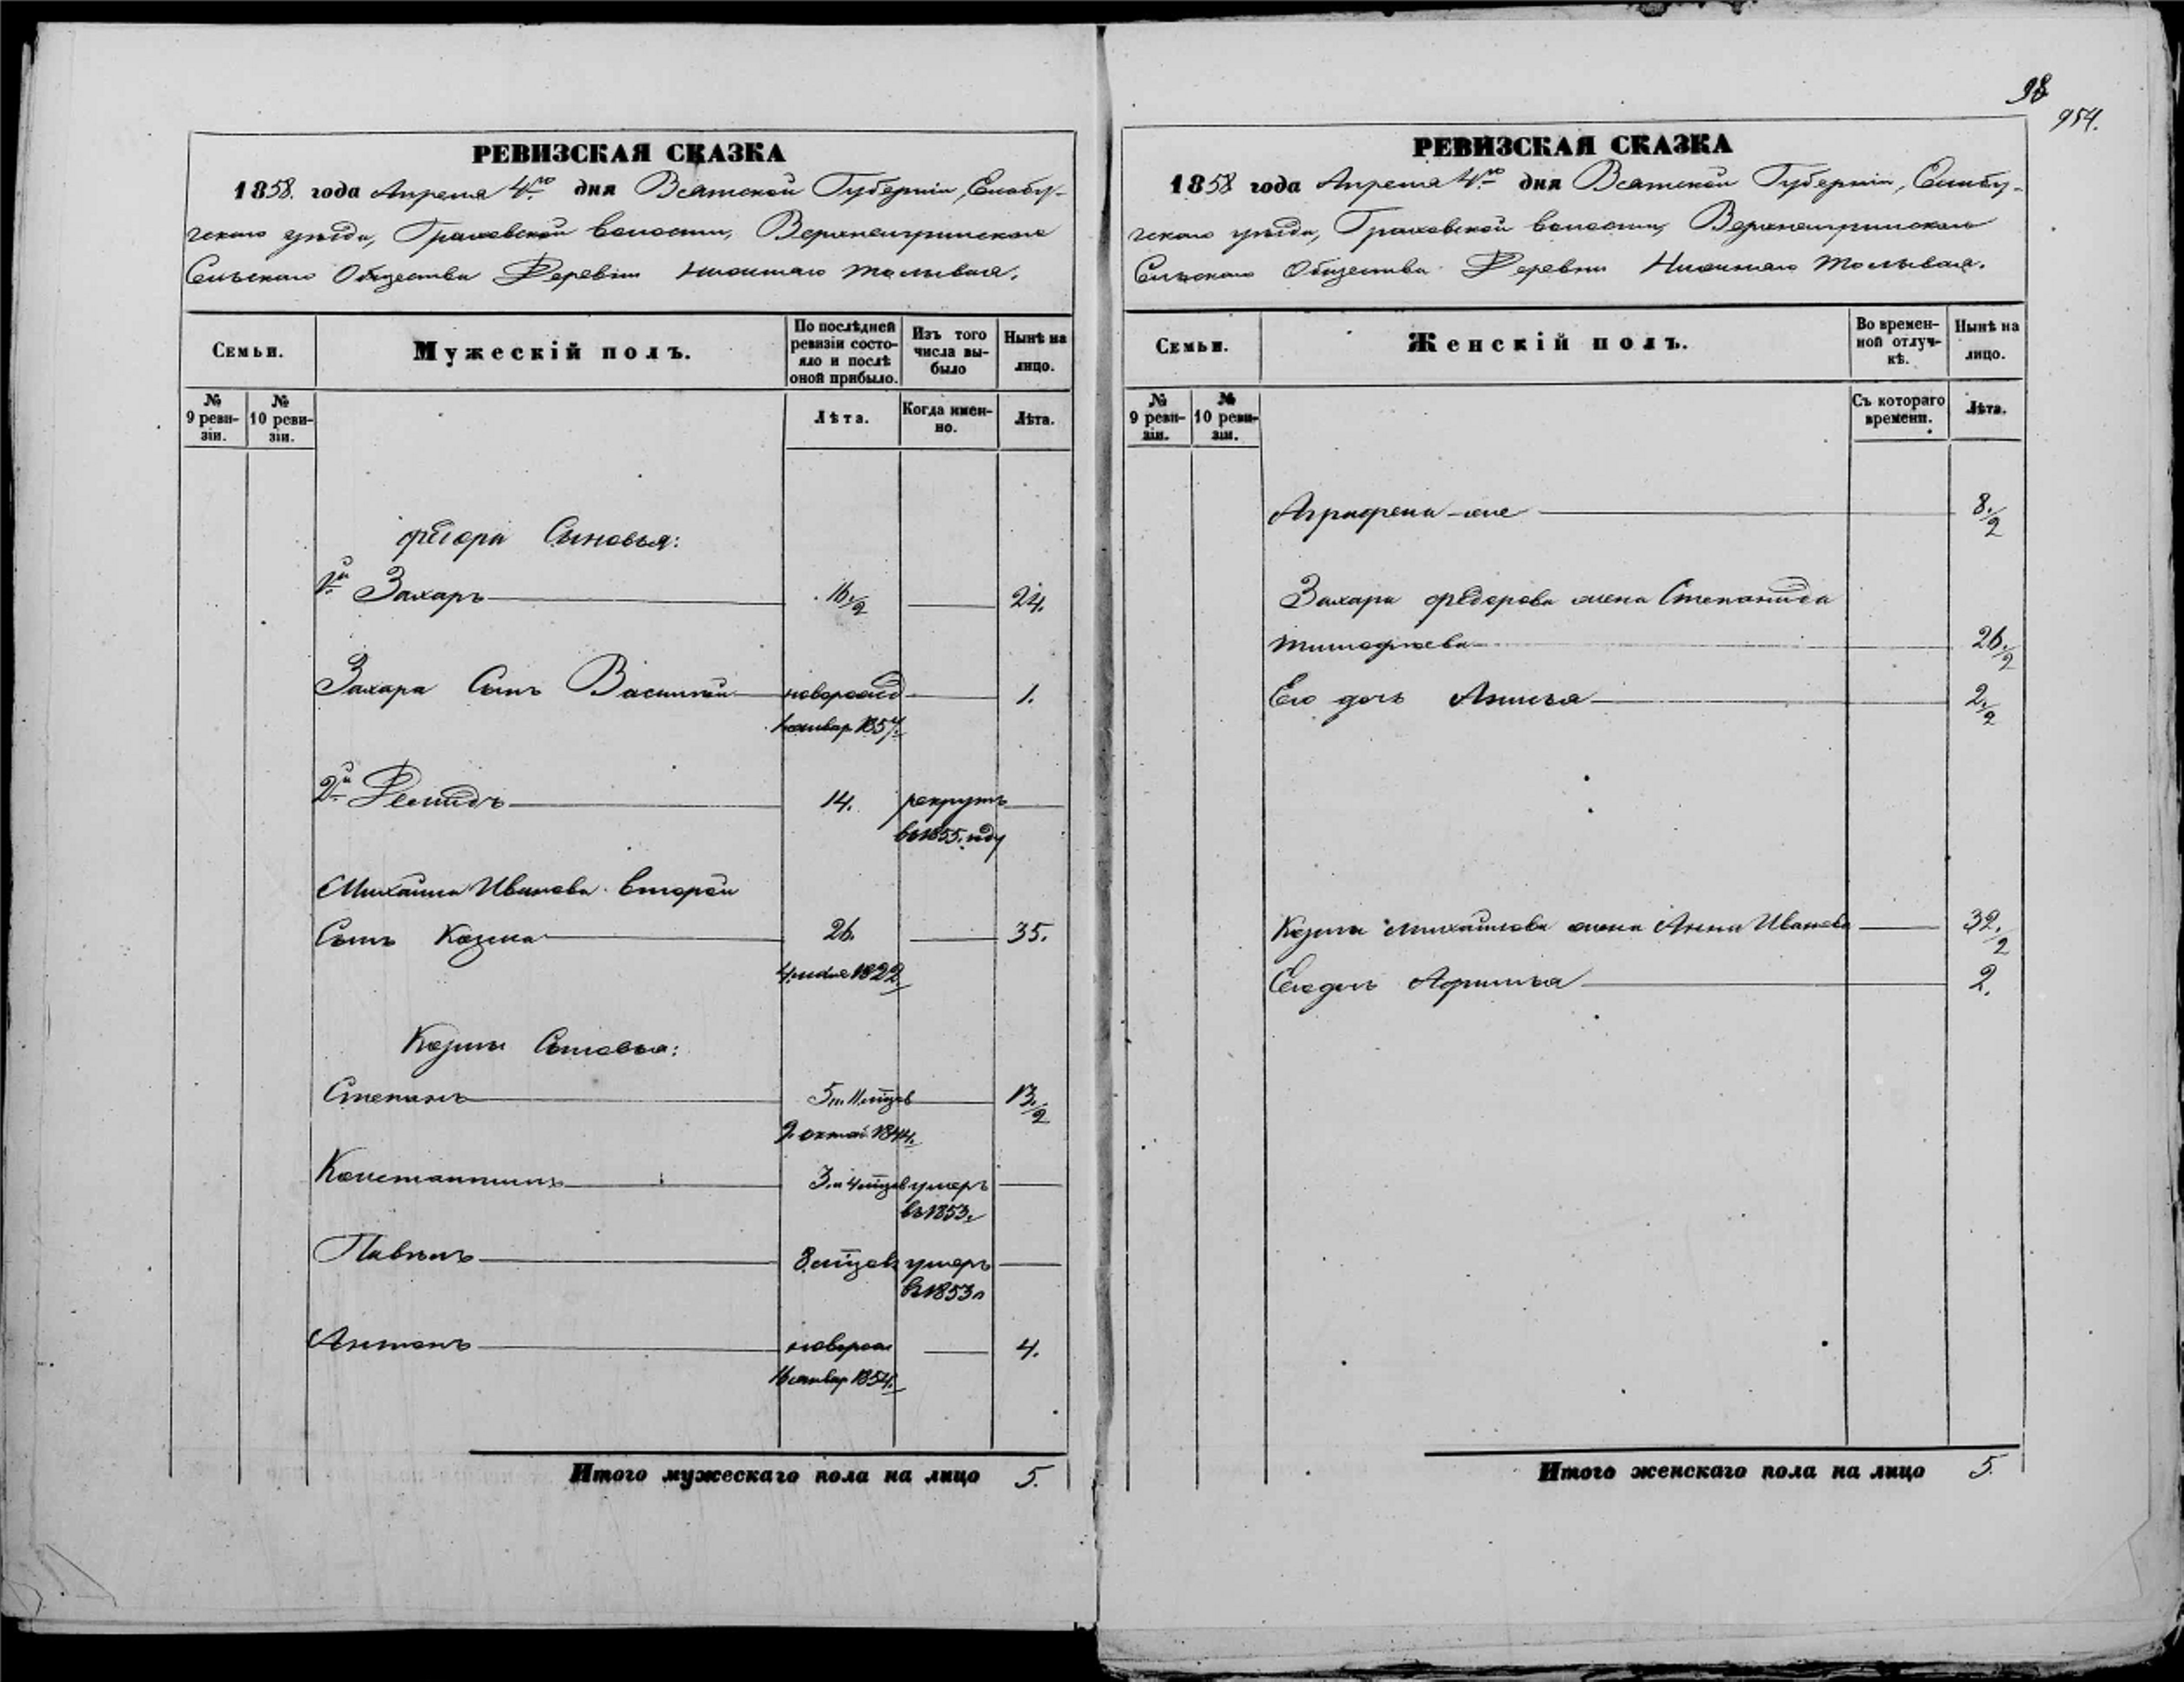 98
954.
РЕВИЗСКАЯ СКАЗКА
1858. года Апреля 4го дня Вятской Губернiи, Елабу-
гскаго уѣзда, Граховской волости, Верхнеигринскаго
Сельскаго Общества Деревни Нижняго
Семьи.
Мужескій полъ.
По послѣдней ревизіи состо-
яло и послѣ оной прибыло.
Изъ того числа вы-
было
Нынѣ на лицо.
№ 9 реви-
зіи.
№ 10 реви-
зіи.
Лѣта.
Когда имен-
но.
Лѣта.
Федора Сыновья:
1й Захаръ 16 1/2 24.
Захара Сынъ Василiй новорожд 1.
январ 1857
2й Демидъ 14. рекрутъ
въ 1855. году
Михаила Иванова второй
Сынъ Козма 26. 35.
1822
Козмы Сыновья:
Степанъ 5 и 11 мцов 13 1/2
9 октяб 1844.
Константинъ 3 и 4 мцов умеръ
въ 1853
Павелъ 8 мцовъ умеръ
въ 1853
Антонъ новорож 4.
16 январ 1854.
Итого мужескаго пола на лицо 5.
РЕВИЗСКАЯ СКАЗКА
1858 года Апреля 4го дня Вятской Губернiи, Елабу-
гскаго уѣзда, Граховской волости, Верхнеигринскаго
Сельскаго Общества Деревни Нижняго
Семьи.
Женскій полъ.
Во времен-
ной отлуч-
кѣ.
Нынѣ на лицо.
№ 9 реви-
зіи.
№ 10 реви-
зіи.
Съ котораго времени.
Лѣта.
Аграфена 8 1/2
Захара Федорова жена Степанида
Тимофеева 26 1/2
Его дочь Анисья 2 1/2
Козмы Михайлова жена Анна Иванова 32 1/2
Его дочь 2.
Итого женскаго пола на лицо 5.